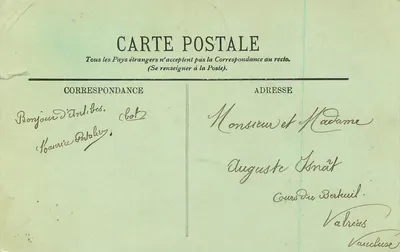 CARTE POSTALE
Tous les Pays étrangers n'acceptent pas la Correspondance au recto.
(Se renseigner à la Poste).
CORRESPONDANCE
ADRESSE
Bonjour d'Antibes.
Maurice
Monsieur et Madame
Auguste Isnât
Cours du Berteuil.
Valréas
Vaucluse